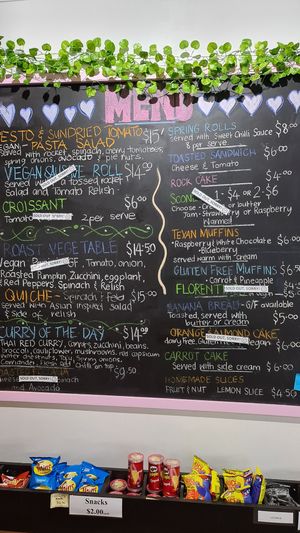 MENU
PESTO & SUNDRIED TOMATO $15
VEGAN - PASTA SALAD
Served with rocket, spinach, cherry tomatoes,
onions, avocado & pie nuts
VEGAN ROLL $14.00
Served with a tossed salad
Salad and Tomato Relish
CROISSANT $6.00
Tomato
SOLD OUT, SORRY!
2 per serve
ROAST VEGETABLE $14.50
Vegan GF, Tomato, onion,
Roasted Pumpkin Zucchini, eggplant,
Red Peppers, Spinach & Relish
QUICHE - Spinach & feta $15.00
Served with Asian inspired Salad
& side of Relish
CURRY OF THE DAY $14.00
THAI RED CURRY, Carrots, zucchini, beans,
broccoli, cauliflower, mushrooms, red capsicum
SOLD OUT, SORRY!
and Avocado
$9.50
SPRING ROLLS $8.00
served with Sweet Chilli Sauce
8 per serve
TOASTED SANDWICH $6.00
Cheese & Tomato
ROCK CAKE $4.00
SCONE 1 - $4 or 2 - $6
Cheese - or butter
Jam - Strawberry or Raspberry
TEXAN MUFFINS
Raspberry & White Chocolate $6.00
served warm with cream
GLUTEN FREE MUFFINS $6.5
Carrot & Pineapple
FLORENT
SOLD OUT, SORRY!
BANANA BREAD - G/F available
Toasted, served with $5.00
butter or cream
ORANGE ALMOND CAKE
SOLD OUT, SORRY!
CARROT CAKE
Served with side cream $6.00
HOMEMADE SLICES
FRUIT & NUT LEMON SLICE $4.50
Snacks
$2.00